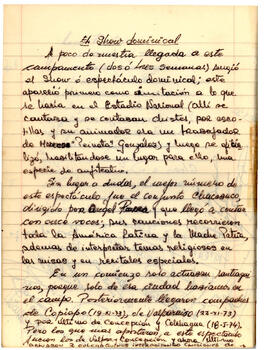 El Show dominical
A poco de nuestra llegada a este
campamento (dos ó tres semanas) surgió
el Show ó espectáculo dominical; este
apareció primero como imitación a lo que
se hacía en el Estadio Nacional (allí se
cantaba y se contaban chistes, por esco-
tillas y su animador era un
González) y luego se
lizó, habilitándose un lugar para ello, una
especie de anfiteatro.
Sin lugar a dudas, el mejor número de
este espectáculo fue el conjunto Chacabuco
dirigido por Angel Parra y que llegó a contar
con once voces, sus canciones recorrieron
toda la América Latina y la Madre Patria
además de interpretar temas religiosos en
las misas y en recitales especiales.
En un comienzo solo actuaban santiagui-
nos, porque solo de esa ciudad habíamos en
el campo. Posteriormente llegaron compañeros
de Copiapó (19-12-73), de Valparaíso (22-11-73)
y por último de Concepción y Colchagua (18-1-74).
Pero los que mas aportaron a este espectáculo
fueron los de Valpo y Concepción y ahora, últimamente